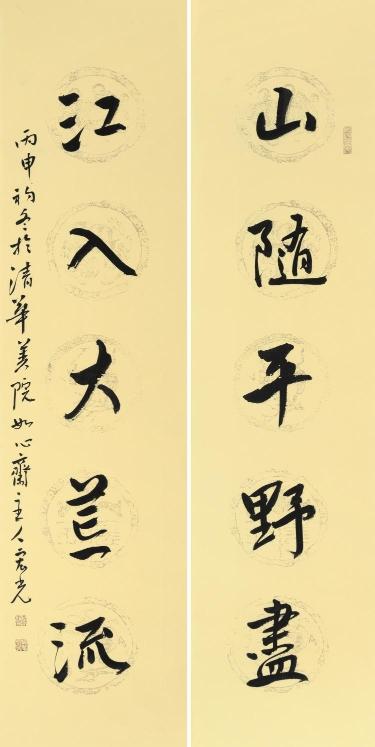 山随平野盡
江入大荒流
丙申初冬於清華美院如心齋主人宏光